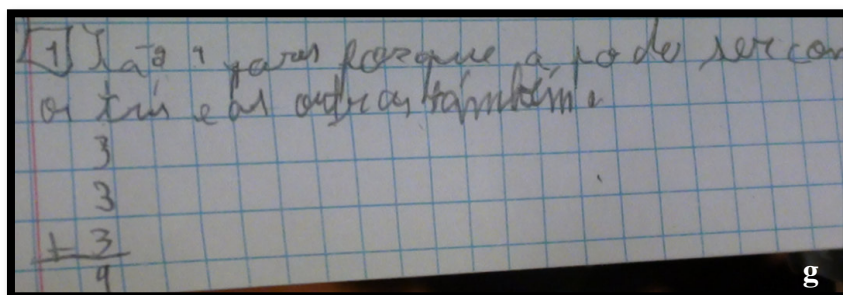 1 porque a pode ser com
os três e as outras também.
3
3
+ 3
9
g